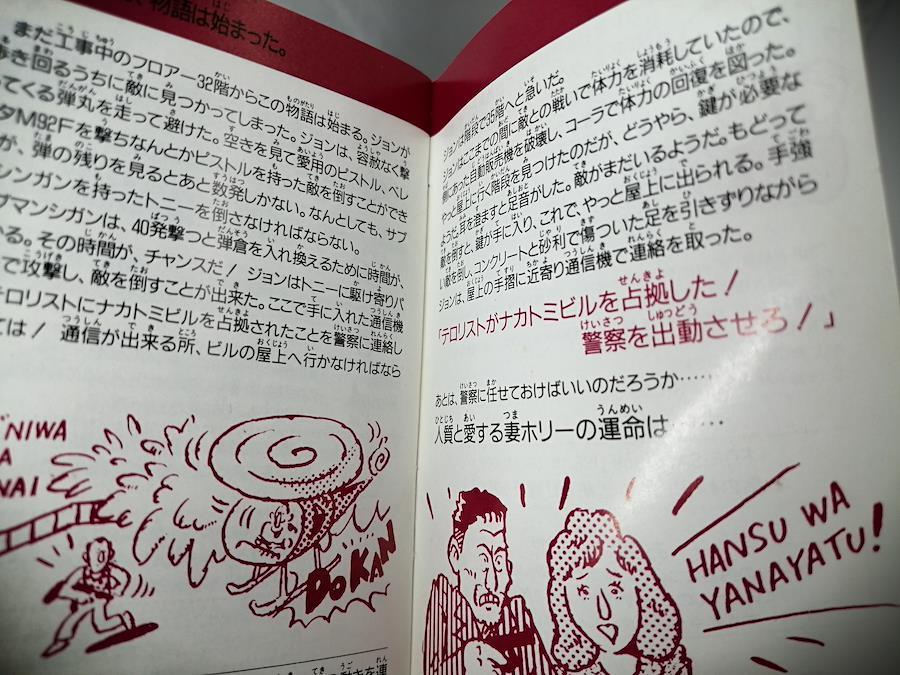 、物語は始まった。
まだ工事中のフロアー32階からこの物語は始まる。ジョンが
歩き回るうちに敵に見つかってしまった。ジョンは、容赦なく撃
ってくる弾丸を走って避けた。空きを見て愛用のピストル、ベレ
タM92Fを撃ちなんとかピストルを持った敵を倒すことができ
が、弾の残りを見るとあと数発しかない。なんとしても、サブ
シンガンを持ったトニーを倒さなければならない。
ブマンシガンは、40発撃つと弾倉を入れ換えるために時間が、
かる。その時間が、チャンスだ!ジョンはトニーに駆け寄りパ
で攻撃し、敵を倒すことが出来た。ここで手に入れた通信機
テロリストにナカトミビルを占拠されたことを警察に連絡し
ては!通信が出来る所、ビルの屋上へ行かなければなら
NIWA
A
NAI
DOKAN
ジョンは階段で35階へと急いだ。
ジョンはここまでの間に敵との戦いで体力を消耗していたので、
側にあった自動販売機を破壊し、コーラで体力の回復を図った。
やっと屋上に行く階段を見つけたのだが、どうやら、鍵が必要な
ようだ。耳を澄ますと足音がした。敵がまだいるようだ。もどって
敵を倒すと、鍵が手に入り、これで、やっと屋上に出られる。手強
い敵を倒し、コンクリートと砂利で傷ついた足を引きずりながら
ジョンは、屋上の手摺に近寄り通信機で連絡を取った。
「テロリストがナカトミビルを占拠した!
警察を出動させろ!」
あとは、警察に任せておけばいいのだろうか……
人質と愛する妻ホリーの運命は……
HANSU WA
YANAYATU!